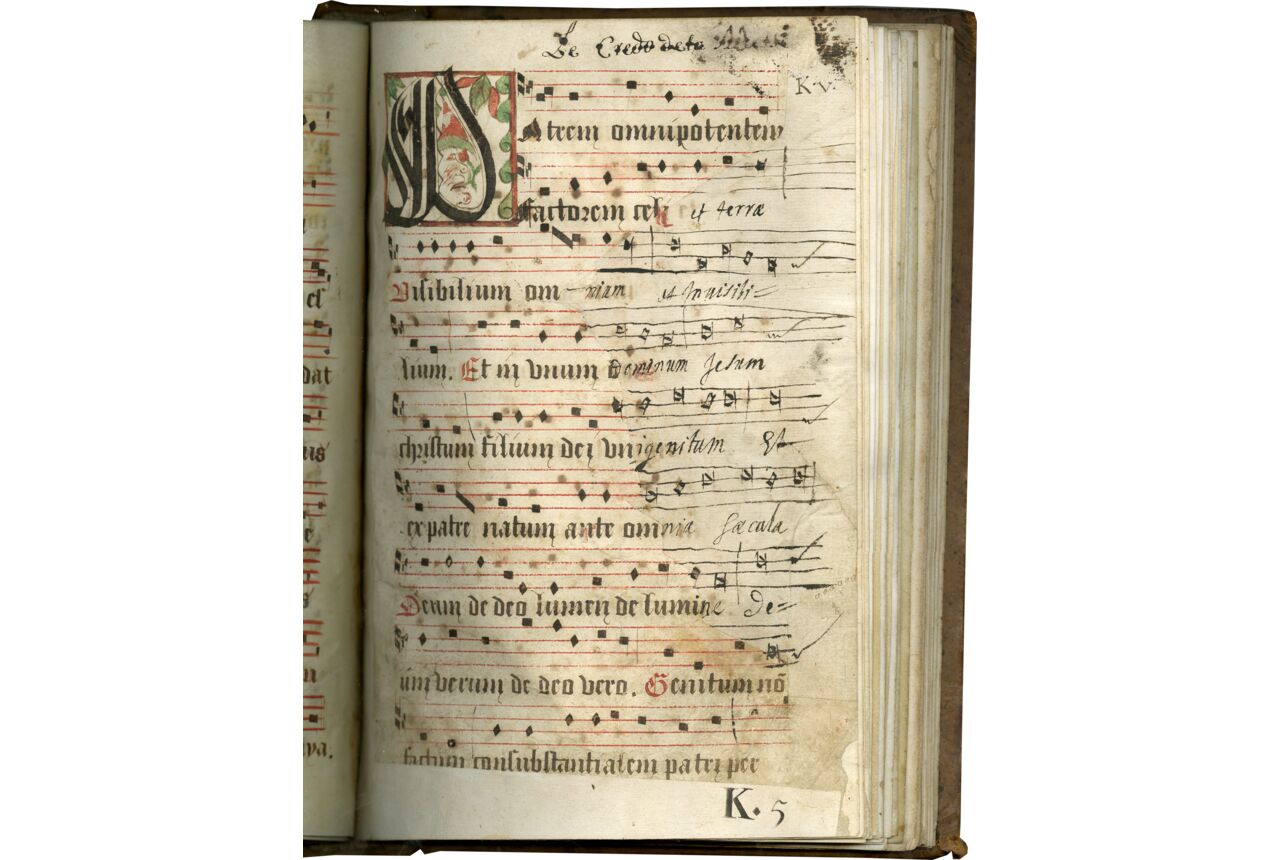 el
dat
us
va.
Le Credo de
K·v.
PAtrem omnipotentem
factorem celi et terræ
Visibilium om—niam et Invisili=
lium. Et in vnum dominum Jesum
christum filium dei vnigenitum Et
ex patre natum ante omnia sæcula
Deum de deo lumen de lumine De=
um verum de deo vero. Genitum nō
factum consubstantialem patri per
K. 5